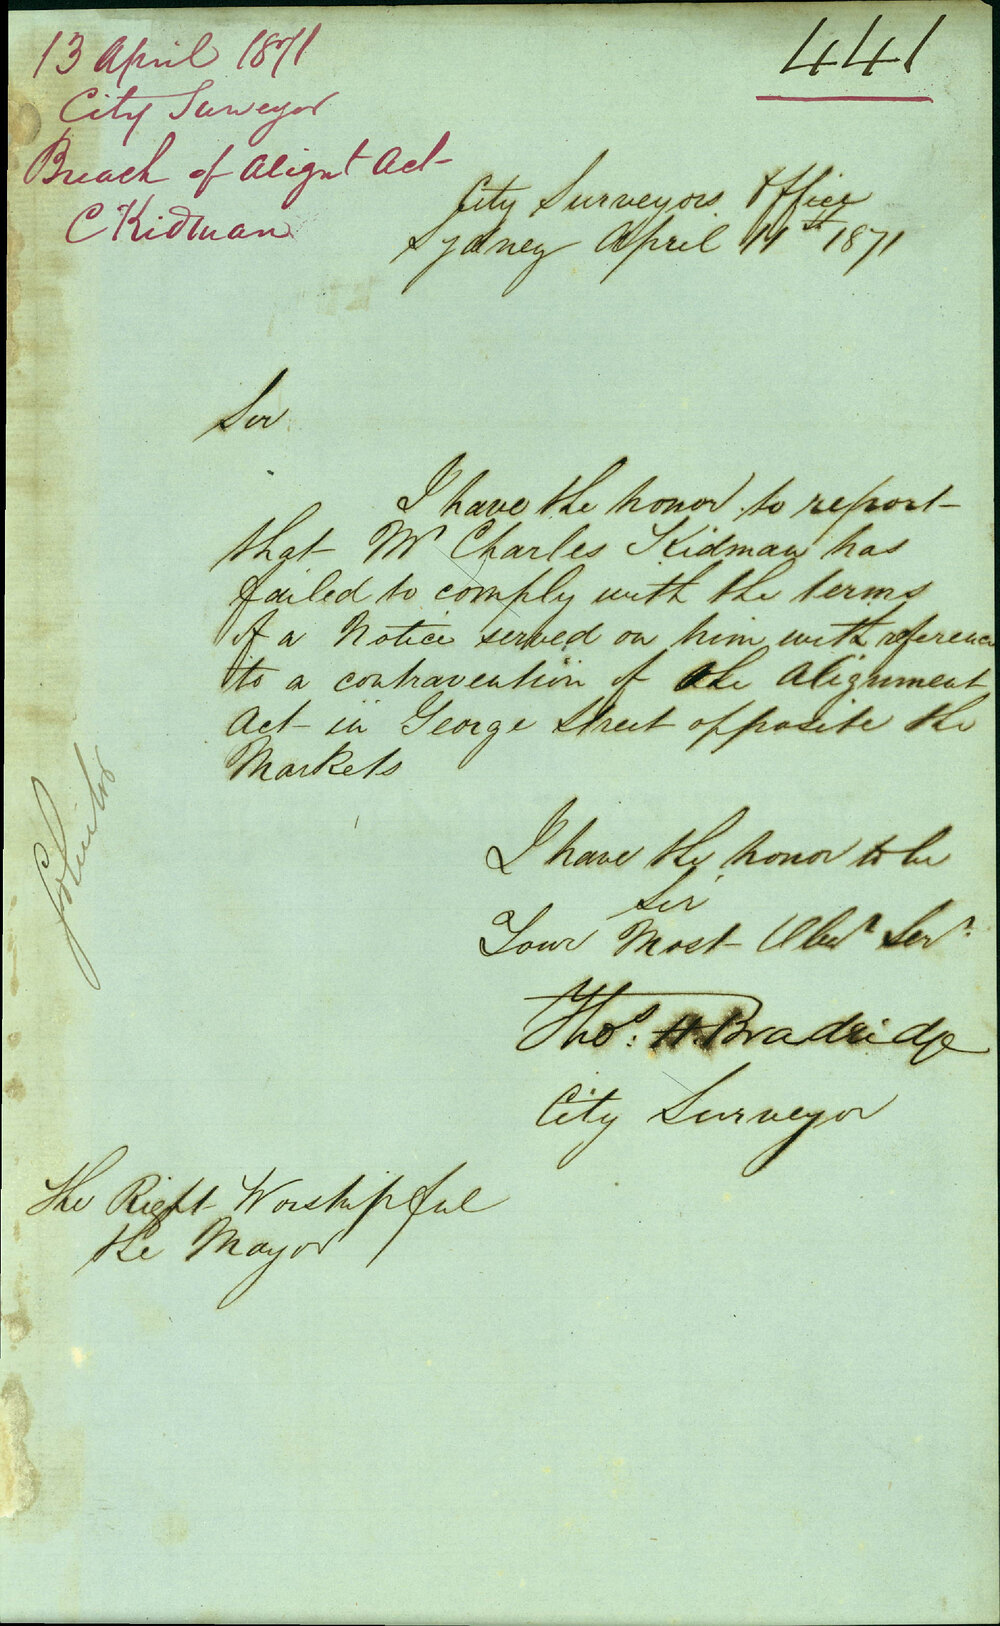 13 April 1871
City Surveyor
Breach of Alignt Act
C Kidman
441
City Surveyors Office
Sydney April 11st 1871
Sir
I have the honor to report
that Mr Charles Kidman has
failed to comply with the terms
of a Notice served on him with reference
to a contravention of the Alignment
Act in George Street opposite the
Markets
I have the honor to be
Sir
Your Most Obedt Servt
Thos. H. Bradridge
City Surveyor
The Right Worshipful
the Mayor
Solicitor